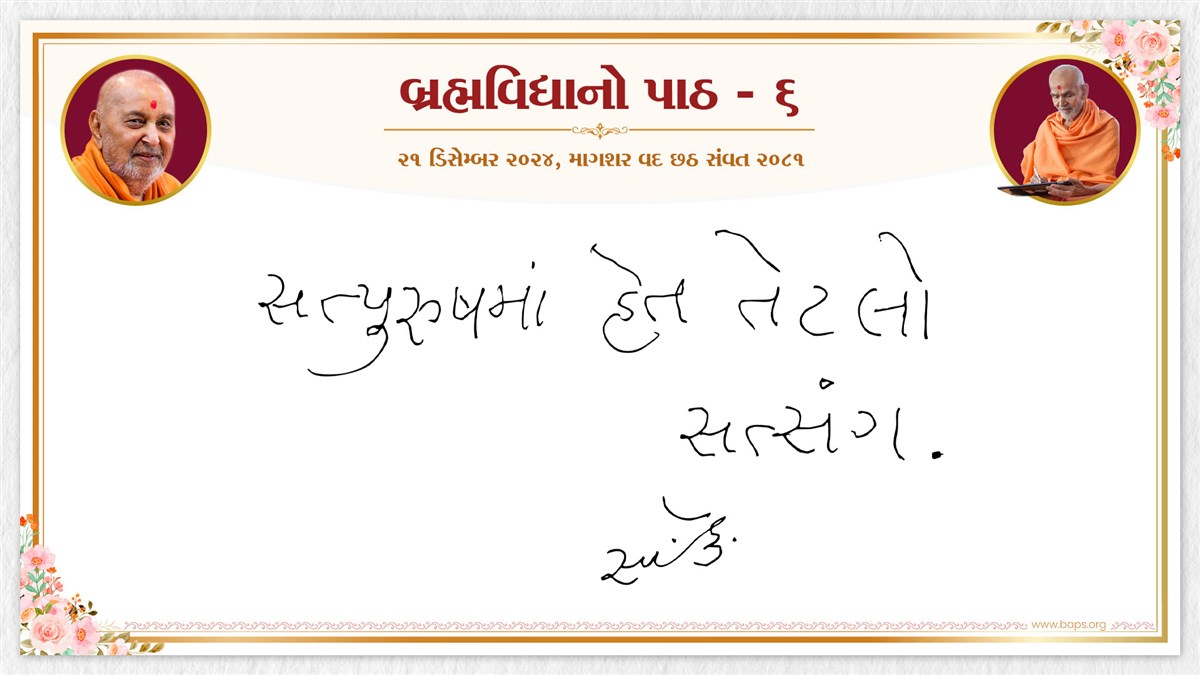 બ્રહ્મવિદ્યાનો પાઠ - ૬
૨૧ ડિસેમ્બર ૨૦૨૪, માગશર વદ છઠ સંવત ૨૦૮૧
સત્પુરુષમાં હેત તેટલો
સત્સંગ.
www.baps.org